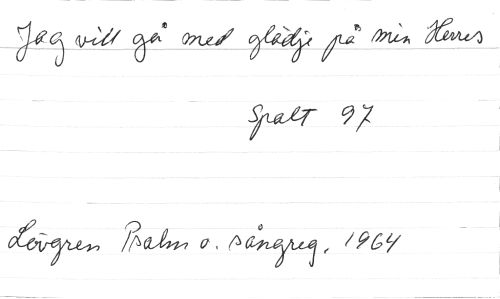 Jag vill gå med glädje på min Herres
Spalt 97
Lövgren Psalm o. sångreg. 1964